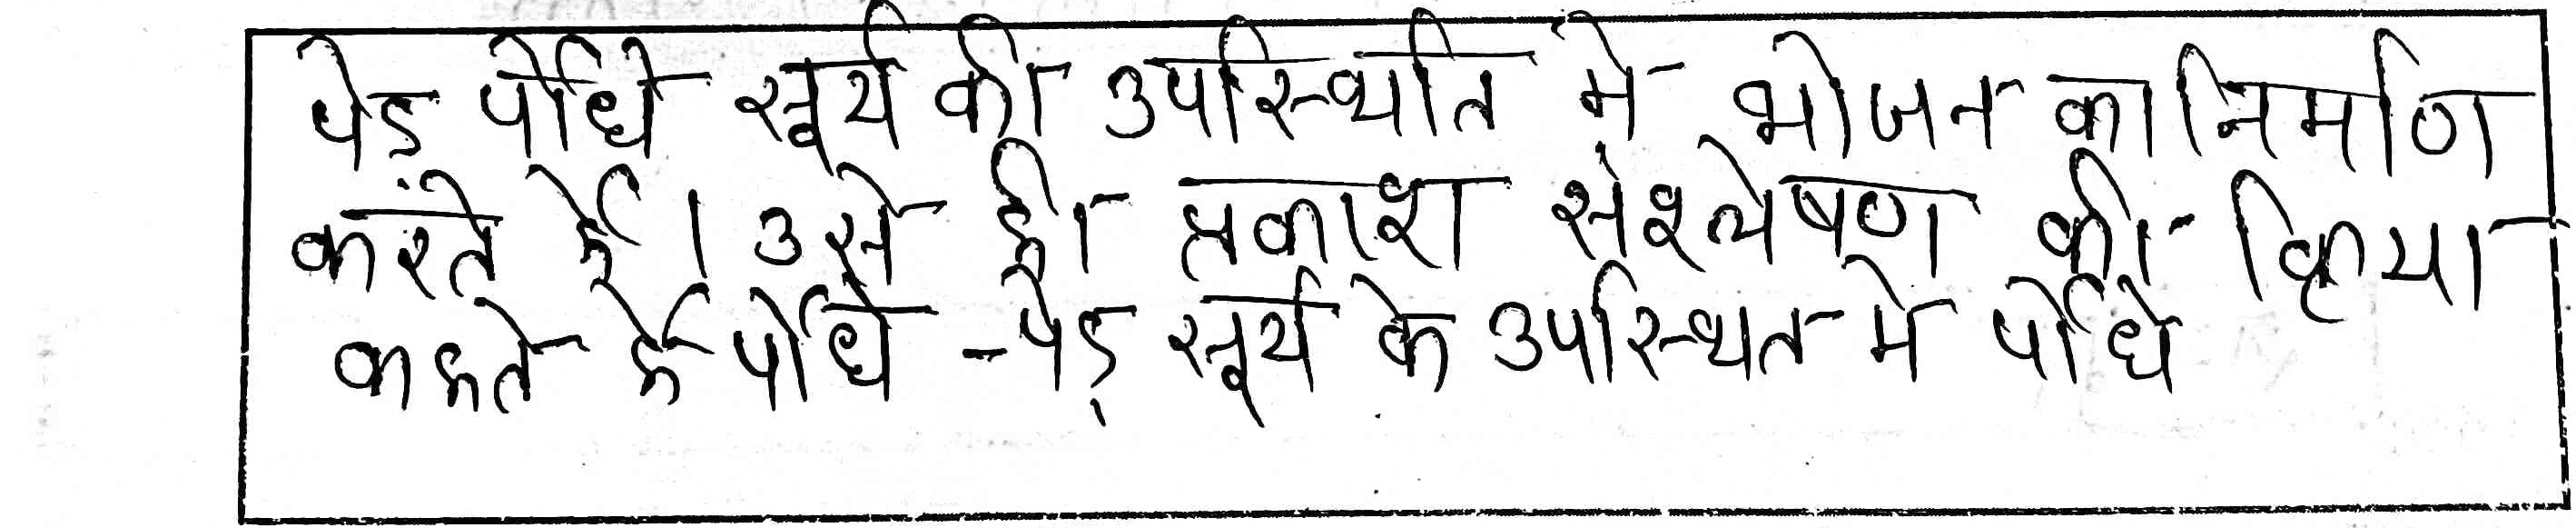 पेड़ पौधे सूर्य की उपस्थिति में भोजन का निर्माण
करते है। उसे ही प्रकाश संश्लेषण की क्रिया
कहते है पौधे -पेड़ सूर्य के उपस्थित मे पौधे